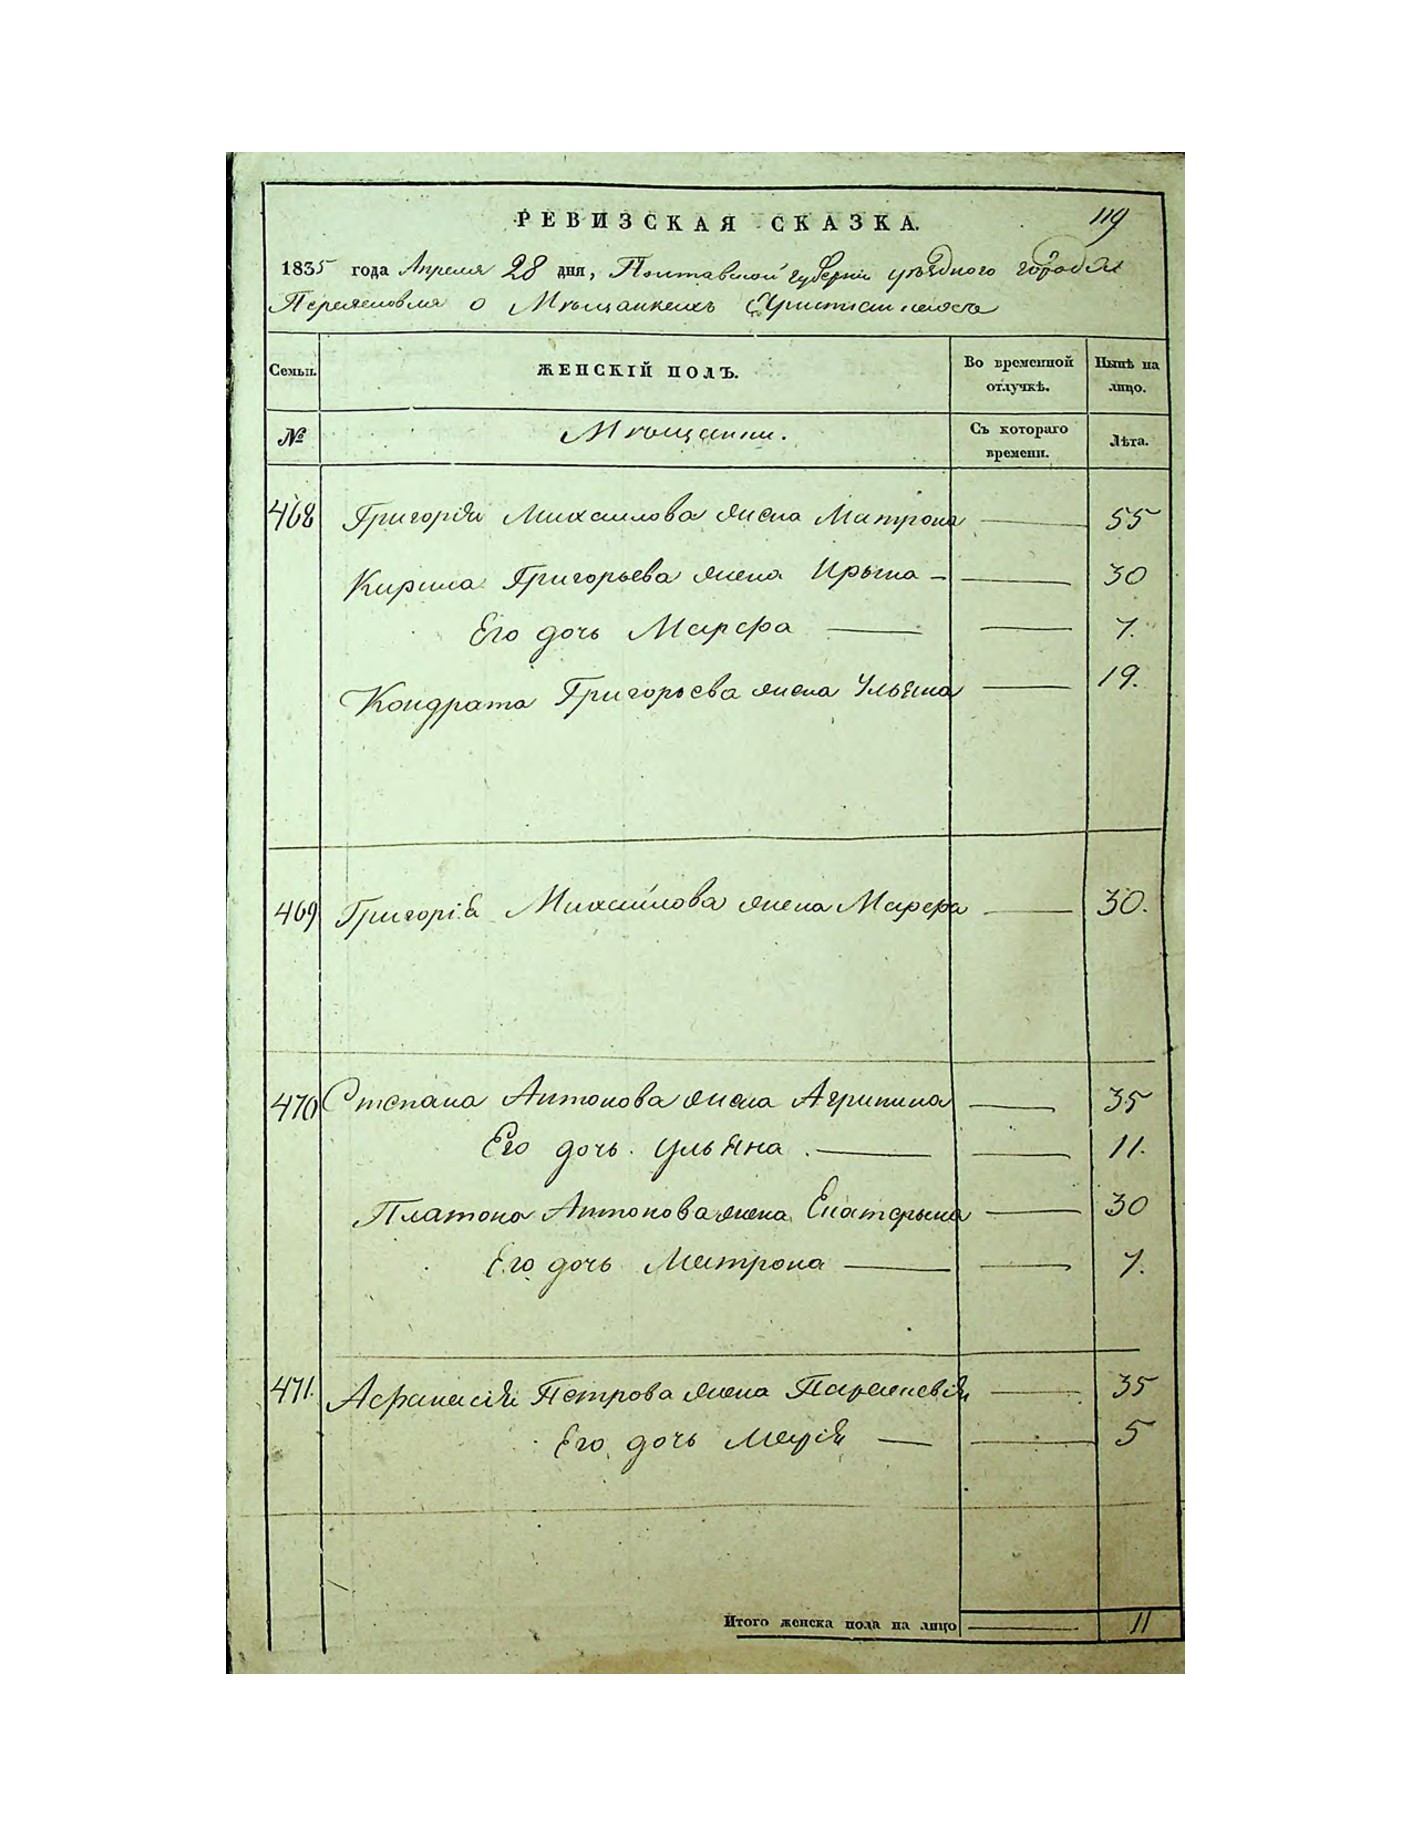 119
РЕВИЗСКАЯ СКАЗКА.
1835 года Апреля 28 дня, Полтавской губерніи уѣзднаго города
Переяславля о Мѣщанкахъ Христианехъ
Семьи. ЖЕНСКІЙ ПОЛЪ. Во временной отлучкѣ. Нынѣ на лицо.
№ Мѣщанки. Съ котораго времени. Лѣта.
468 Григорія Михайлова жена Матрона — 55
Кирила Григорьева жена Ирына — 30
Его дочь Марфа — 7.
Кондрата Григорьева жена Ульяна — 19.
469 Григорія Михайлова жена Марфа — 30.
470 Степана Антонова жена Агрипина — 35
Его дочь Ульяна — 11.
Платона Антонова жена Екатерына — 30
Его дочь Матрона — 7.
471. Афанасія Петрова жена Параскевія — 35
Его дочь Марія — 5
Итого женска пола на лицо — 11